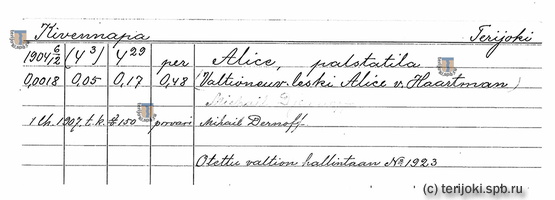 Kivennapa Terijoki
1904 6/2 (4³) 4²⁹ per Alice, palstatila
0,0018 0,05 0,17 0,48 (Valtioneuv. leski Alice v. Haartman)
1 Ch. 1907. t.k. # 150 povari Mihail Dernoff
Otettu valtion hallintaan No 1923
(c) terijoki.spb.ru